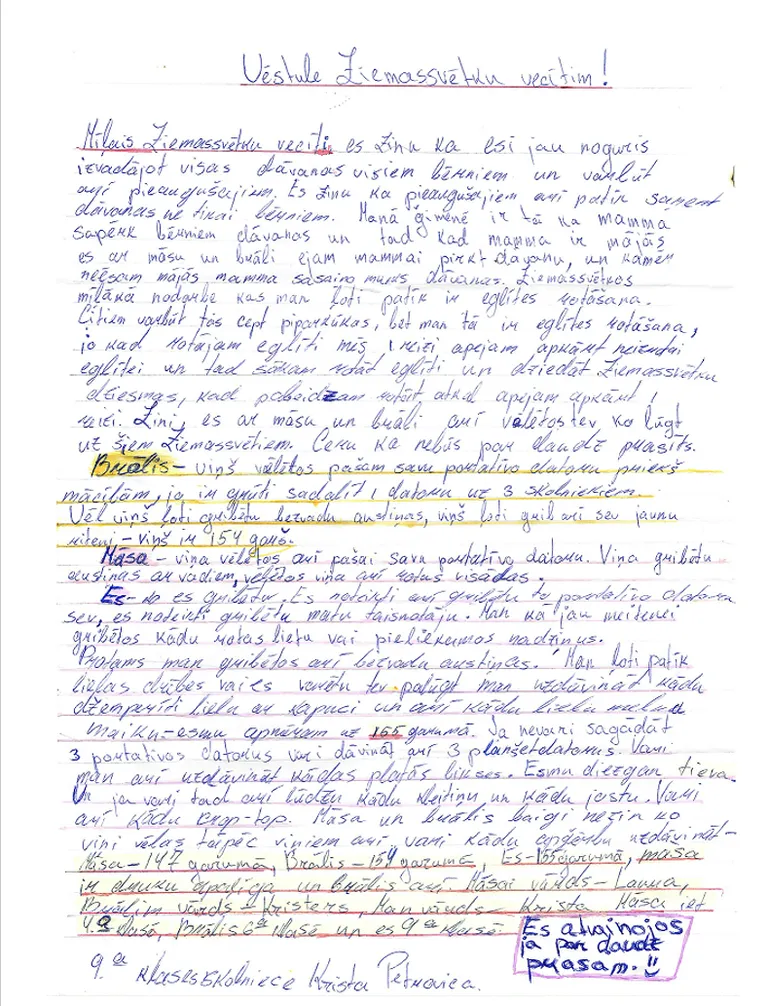 Vēstule Ziemassvētku vecītim!
Mīļais Ziemassvētku vecīti es zinu ka esi jau noguris
izvadājot visas dāvanas visiem bērniem un varbūt
arī pieaugušajiem. Es zinu ka pieaugušajiem arī patīk saņemt
dāvanas ne tikai bērniem. Manā ģimenē ir tā ka mamma
sapērk bērniem dāvanas un tad kad mamma ir mājās
es ar māsu un brāli ejam mammai pirkt dāvanu, un kamēr
neesam mājās mamma sasaiņo mums dāvanas. Ziemassvētkos
mīļākā nodarbe kas man ļoti patīk ir eglītes rotāšana.
Citiem varbūt tās cept piparkūkas, bet man tā ir eglītes rotāšana,
jo kad rotājam eglīti mēs 1 reizi apejam apkārt
eglītei un tad sākam rotāt eglīti un dziedāt Ziemassvētku
dziesmas, kad pabeidzam rotāt, atkal apejam apkārt 1
reizi. Zini, es ar māsu un brāli arī vēlētos tev ko lūgt
uz šiem Ziemassvētiem. Ceru ka nebūs par daudz prasīts.
Brālis - viņš vēlētos pašam savu portatīvo datoru priekš
mācībām, jo ir grūti sadalīt 1 datoru uz 3 skolniekiem.
Vēl viņš ļoti gribētu bezvadu austiņas, viņš ļoti grib arī sev jaunu
riteni - viņš ir 154 garš.
Māsa - viņa vēlētos arī pašai sava portatīvo datoru. Viņa gribētu
austiņas ar vadiem, vēlētos viņa arī rotas visādas.
Es - ko es gribētu. Es noteikti arī gribētu to portatīvo datoru
sev, es noteikti gribētu matu taisnotāju. Man kā jau meitenei
gribētos kādu rotas lietu vai pieliekamos nadziņus.
Protams man gribētos arī bezvadu austiņas. Man ļoti patīk
lielas drēbes vai es varētu tev palūgt man uzdāvināt kādu
džemperīti lielu ar kapuci un arī kādu lielu melnu
maiku - esmu apmēram uz 155 garumā. Ja nevari sagādāt
3 portatīvos datorus vari dāvināt arī 3 planšetdatorus. Vari
man arī uzdāvināt kādas platās bikses. Esmu diezgan tieva.
Un ja vari tad arī lūdzu kādu kleitiņu un kādu jostu. Vari
arī kādu crop-top. Māsa un brālis baigi nezin ko
viņi vēlas tāpēc viņiem arī vari kādu apģērbu uzdāvināt -
Māsa - 147 garumā, Brālis - 154 garumā, Es - 155 garumā, māsa
ir druku apaļīga un brālis arī. Māsai vārds - Laura,
Brālim vārds - Kristers, Man vārds - Krista Māsa iet
4.a klasē, Brālis 6a klasē un es 9a klasē
Es atvainojos
ja par daudz
prasam.
9.a klases skolniece Krista Petrovica.